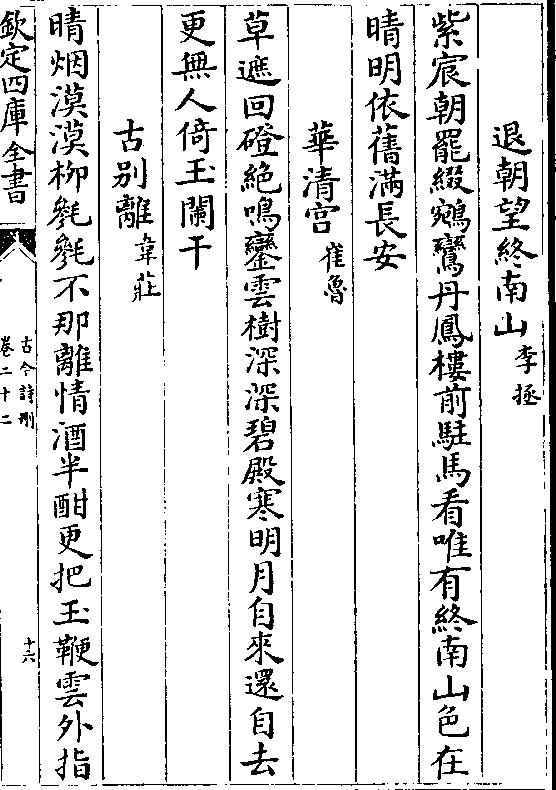 退朝望終南山李拯
紫宸朝罷綴鵷鸞丹鳳樓前駐馬看唯有終南山色在
晴明依舊滿長安
華清宫崔魯
草遮回磴絶鳴鑾雲樹深深碧殿寒明月自來還自去
更無人倚玉闌干
古别離韋莊
晴烟漠漠栁毿毿不那離情酒半酣更把玉鞭雲外指
欽定四庫全書
古今詩刪
卷二十二
十六